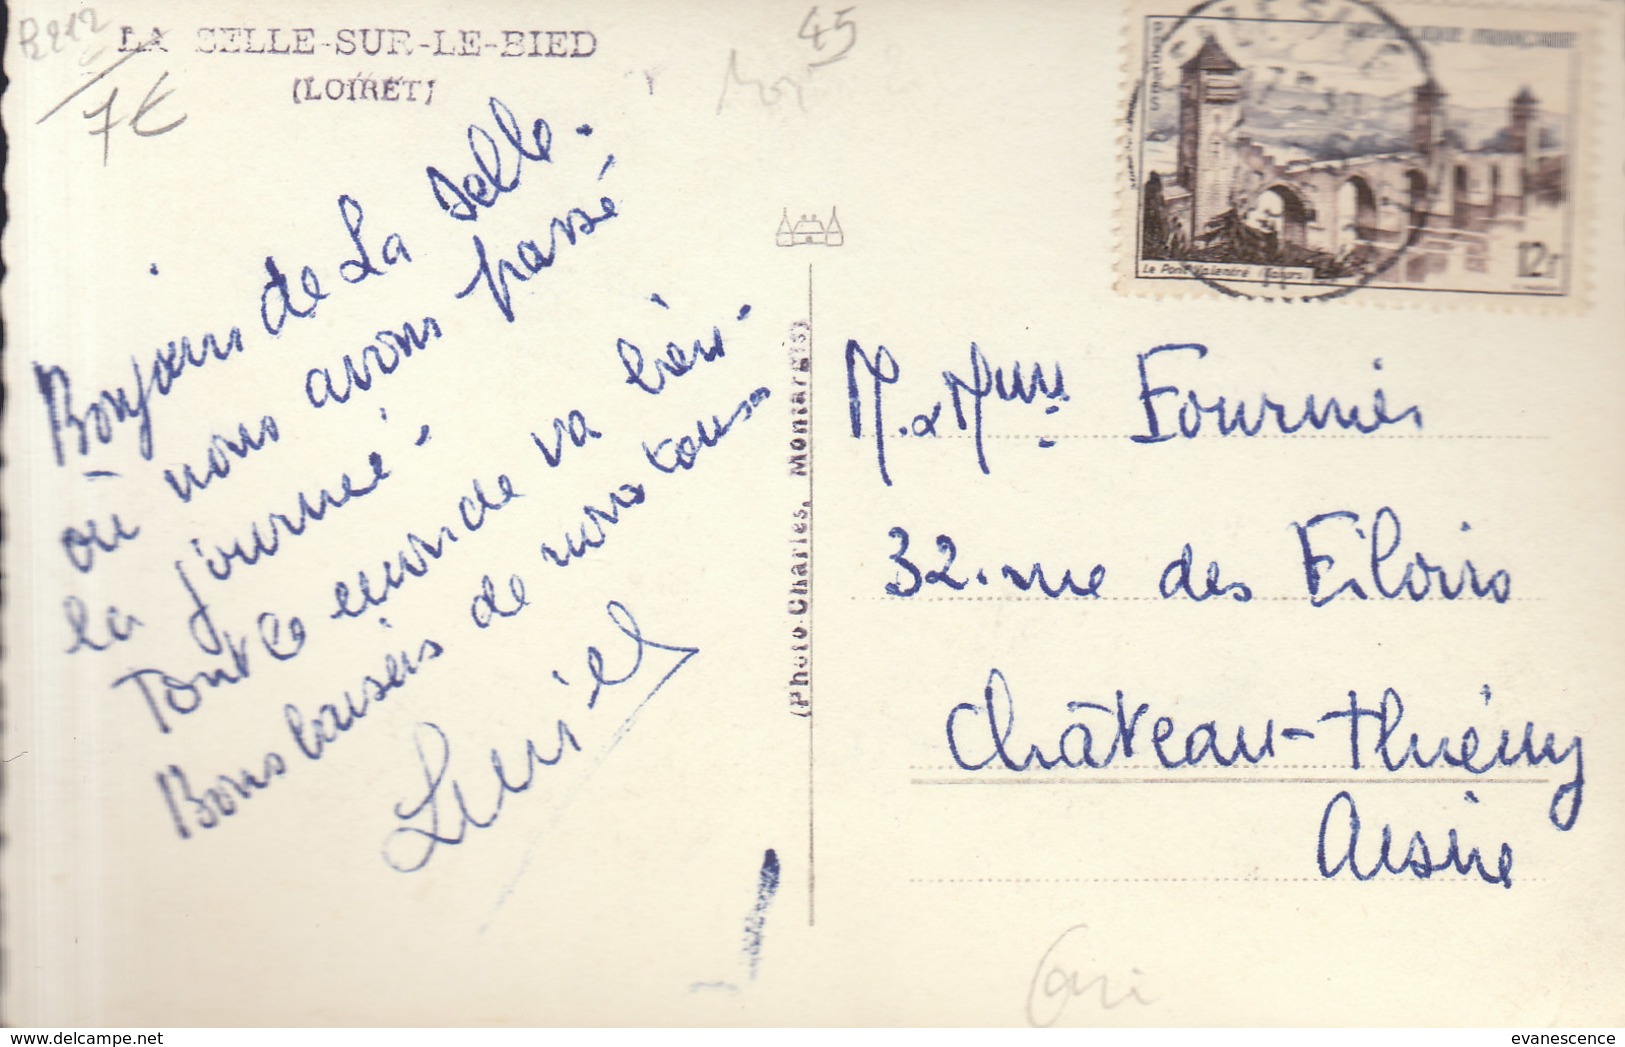 R212
7€
LA SELLE-SUR-LE-BIED
(LOIRET)
45
Bonjour de La Selle.
où nous avons passé
la journée.
Tout le monde va bien.
Bons baisers de nous tous
(Photo-Charles, Montargis)
RÉPUBLIQUE FRANÇAISE
POSTES
Le Pont Valentré (Cahors)
12F
M. & Mme Fournier
32. rue des Filoirs
Château-Thierry
Aisne
www.delcampe.net
evanescence